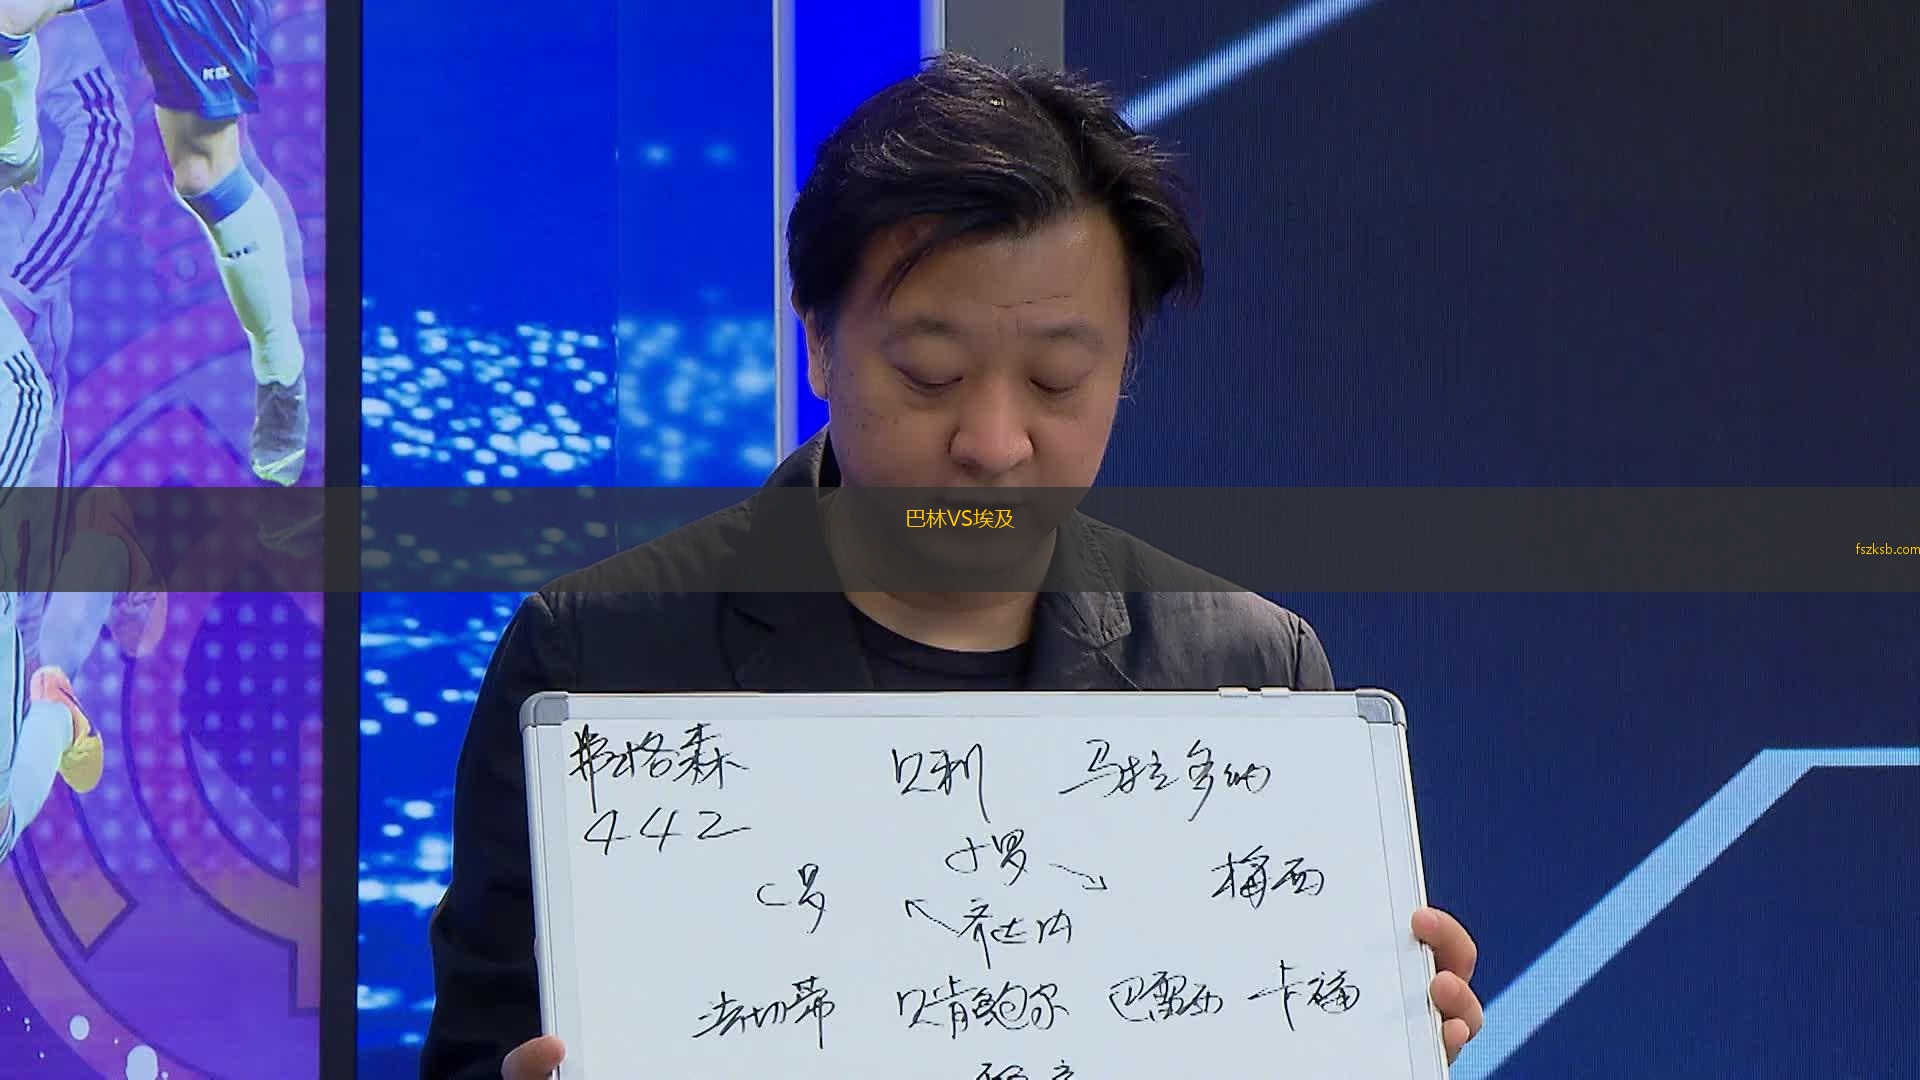 巴林VS埃及
fszksb.com
弗格森 贝利 马拉多纳
442
小罗
C罗 梅西
齐达内
法切蒂 贝肯鲍尔 巴雷西 卡福